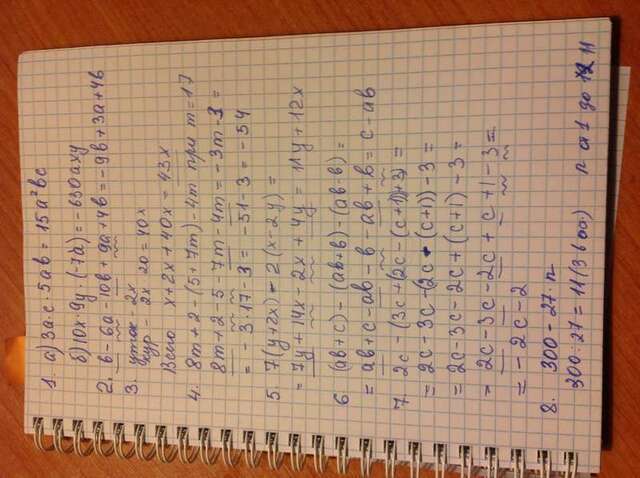 1. а) 3ac · 5ab = 15a²bc
б) 10x · 9y · (-7a) = -630axy
2. b - 6a - 10b + 9a + 4b = -9b + 3a + 4b
3. 2x
кур - 2x · 20 = 40x
Всего x + 2x + 40x = 43x
4. 8m + 2 - (5 + 7m) - 4m при m = 17
8m + 2 - 5 - 7m - 4m = -3m - 3 =
= -3 · 17 - 3 = -51 - 3 = -54
5. 7(y + 2x) - 2(x - 2y) =
= 7y + 14x - 2x + 4y = 11y + 12x
6 (ab + c) - (ab + b) - (ab - b) =
= ab + c - ab - b - ab + b = c - ab
7. 2c - (3c + (2c - (c + 1)) + 3) =
= 2c - 3c - (2c - (c + 1)) - 3 =
= 2c - 3c - 2c + (c + 1) - 3 =
= 2c - 3c - 2c + c + 1 - 3 =
= -2c - 2
8. 300 - 27 · n
300 : 27 = 11 (3 ) n от 1 до 11